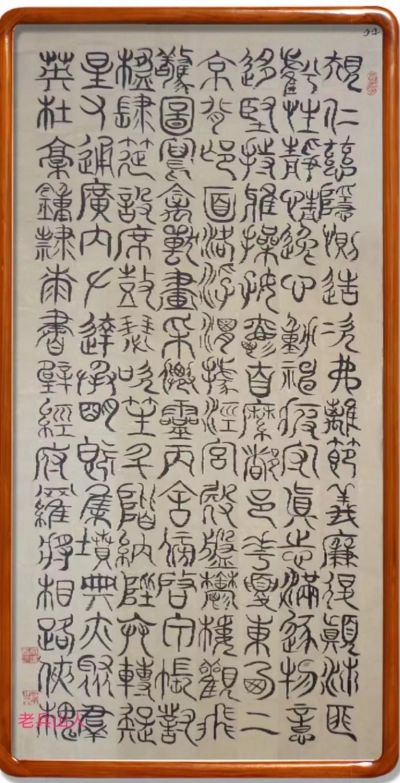 規仁慈隱惻造次弗離節義廉退顛沛匪
虧性靜情逸心動神疲守真志滿逐物意
移堅持雅操好爵自縻都邑華夏東西二
京背邙面洛浮渭據涇宮殿盤鬱樓觀飛
驚圖寫禽獸畫采仙靈丙舍傍啟甲帳對
楹肆筵設席鼓瑟吹笙升階納陛弁轉疑
星右通廣內左達承明既集墳典亦聚群
英杜稾鍾隸漆書壁經府羅將相路俠槐